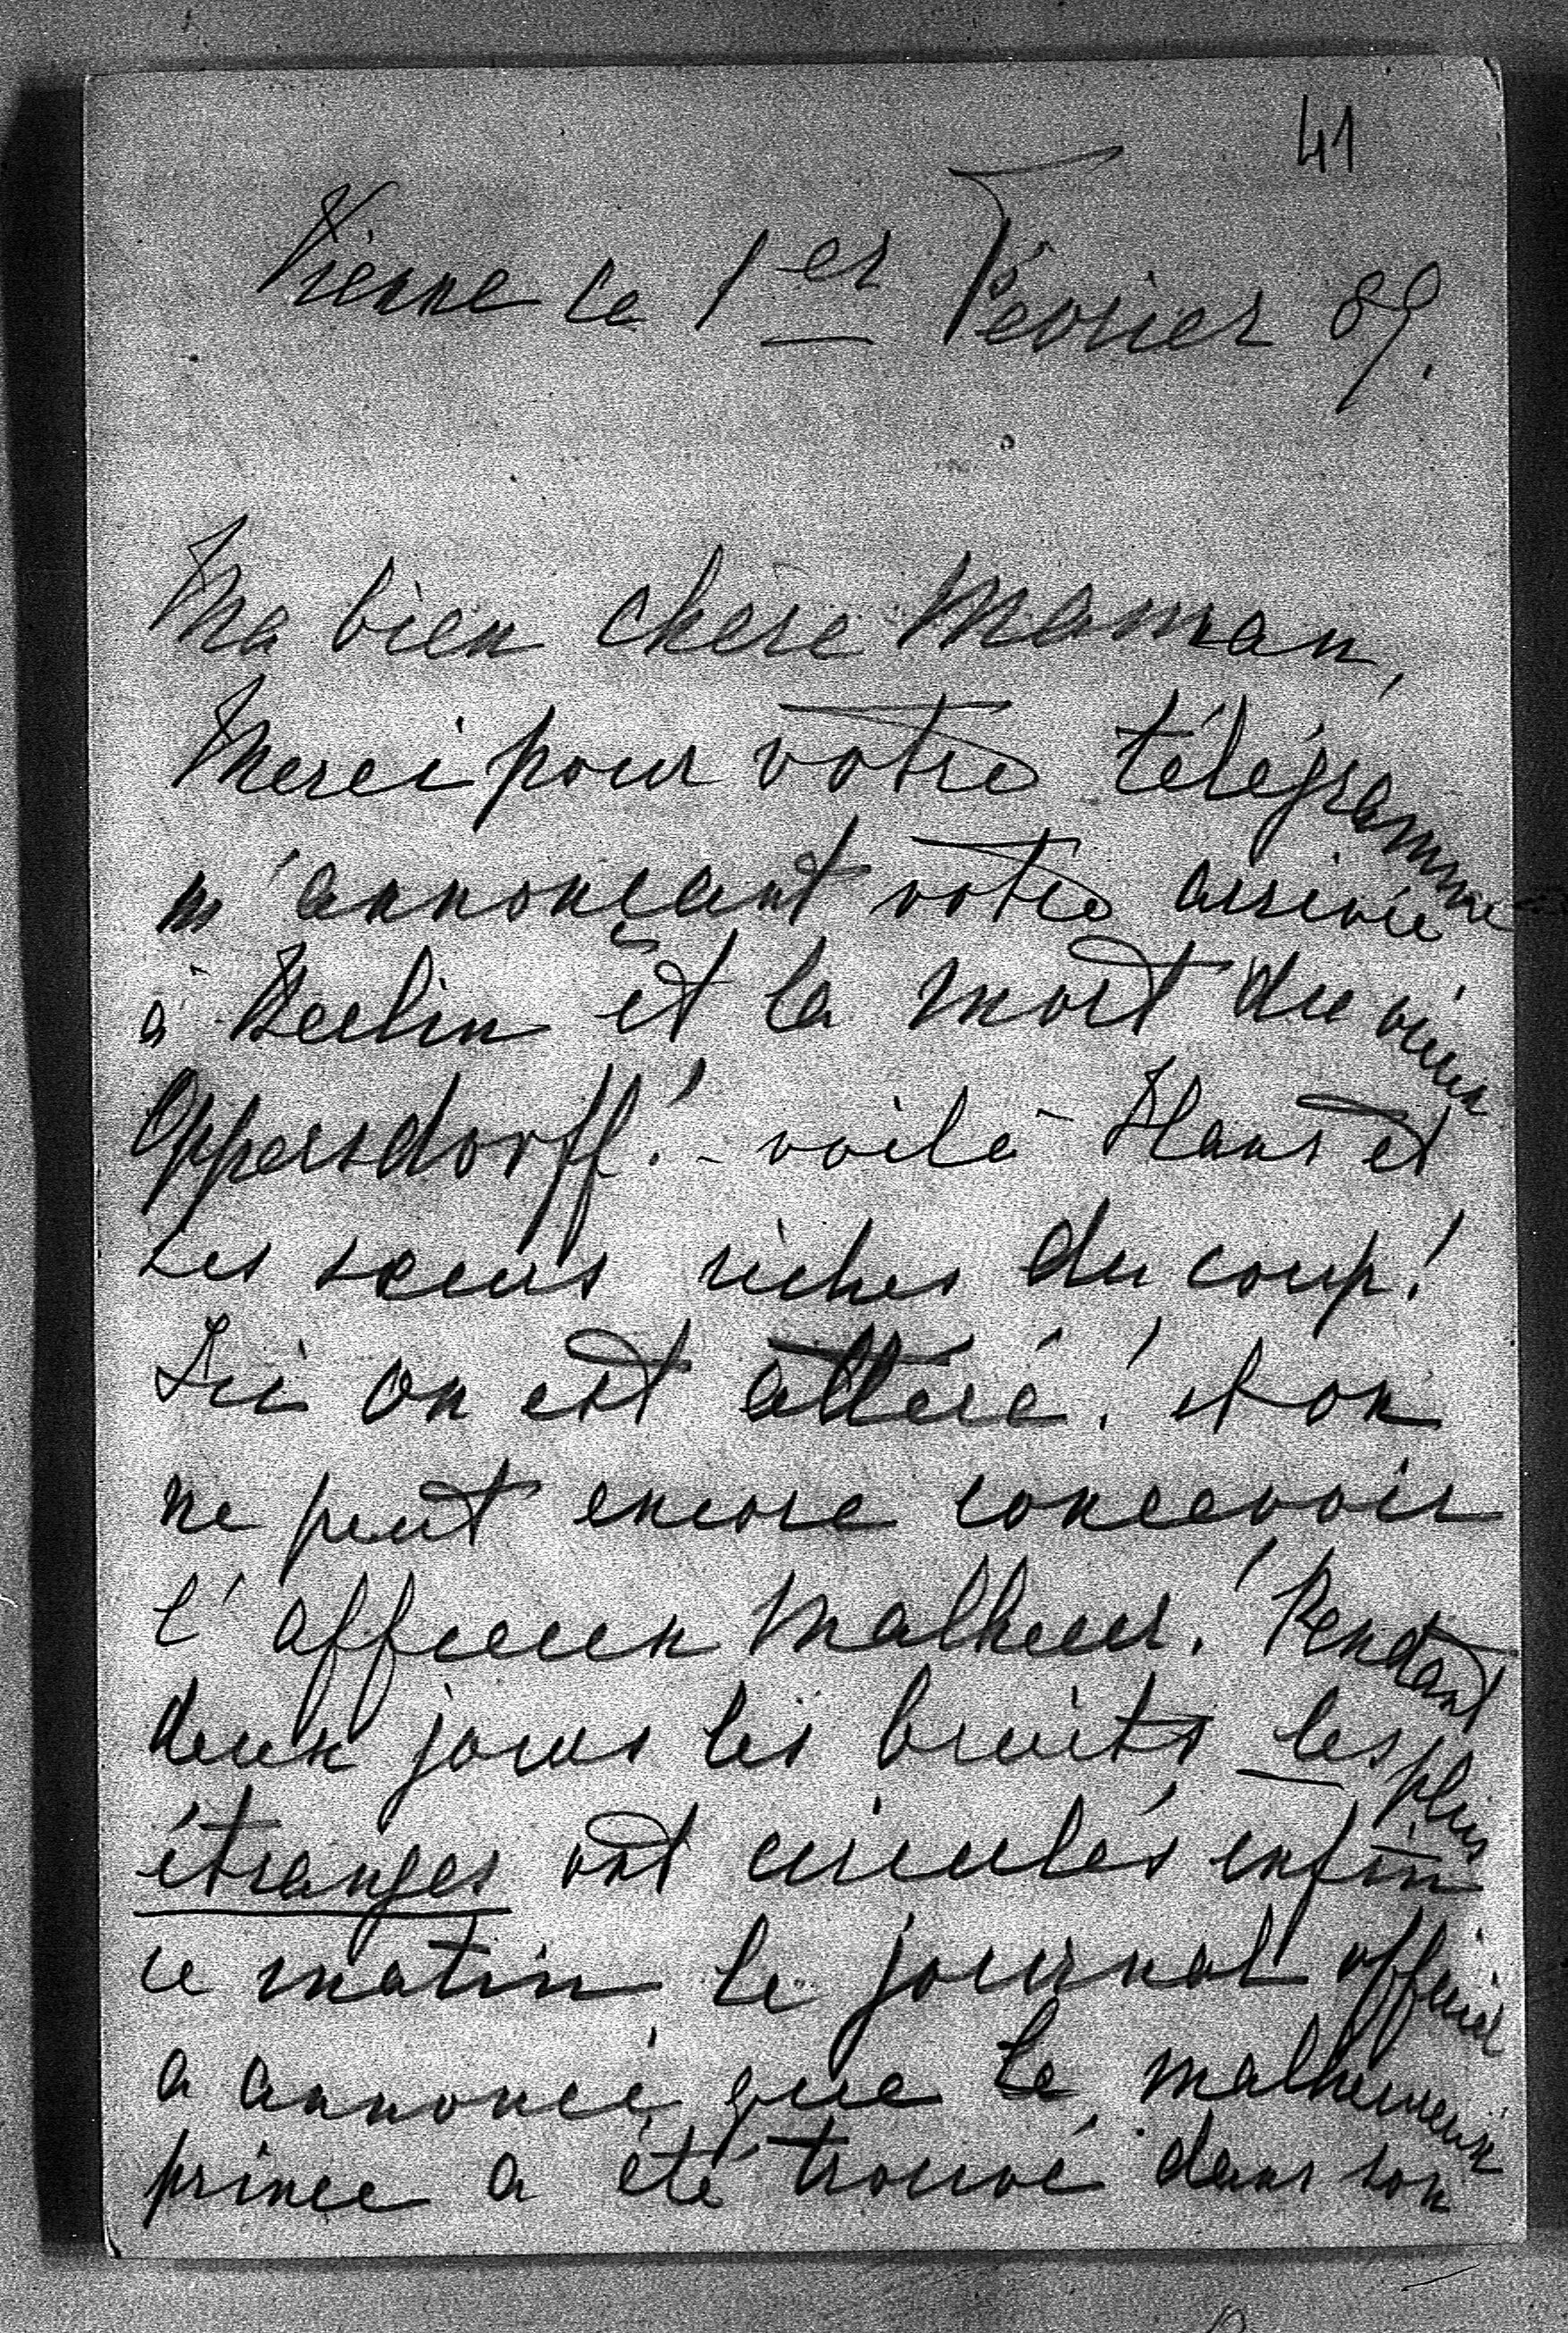 41
Vienne le 1er Février 89.
Ma bien chère Maman,
Merci pour votre télégramme
m'annonçant votre arrivée
à Berlin et la mort du vieux
Oppersdorff! - voilà Hans et
ses sœurs riches du coup!
Ici on est attéré! et on
ne peut encore concevoir
l'affreux malheur! Pendant
deux jours les bruits les plus
étranges ont circulés enfin
ce matin le journal officiel
a annoncé que le malheureux
prince a été trouvé dans son